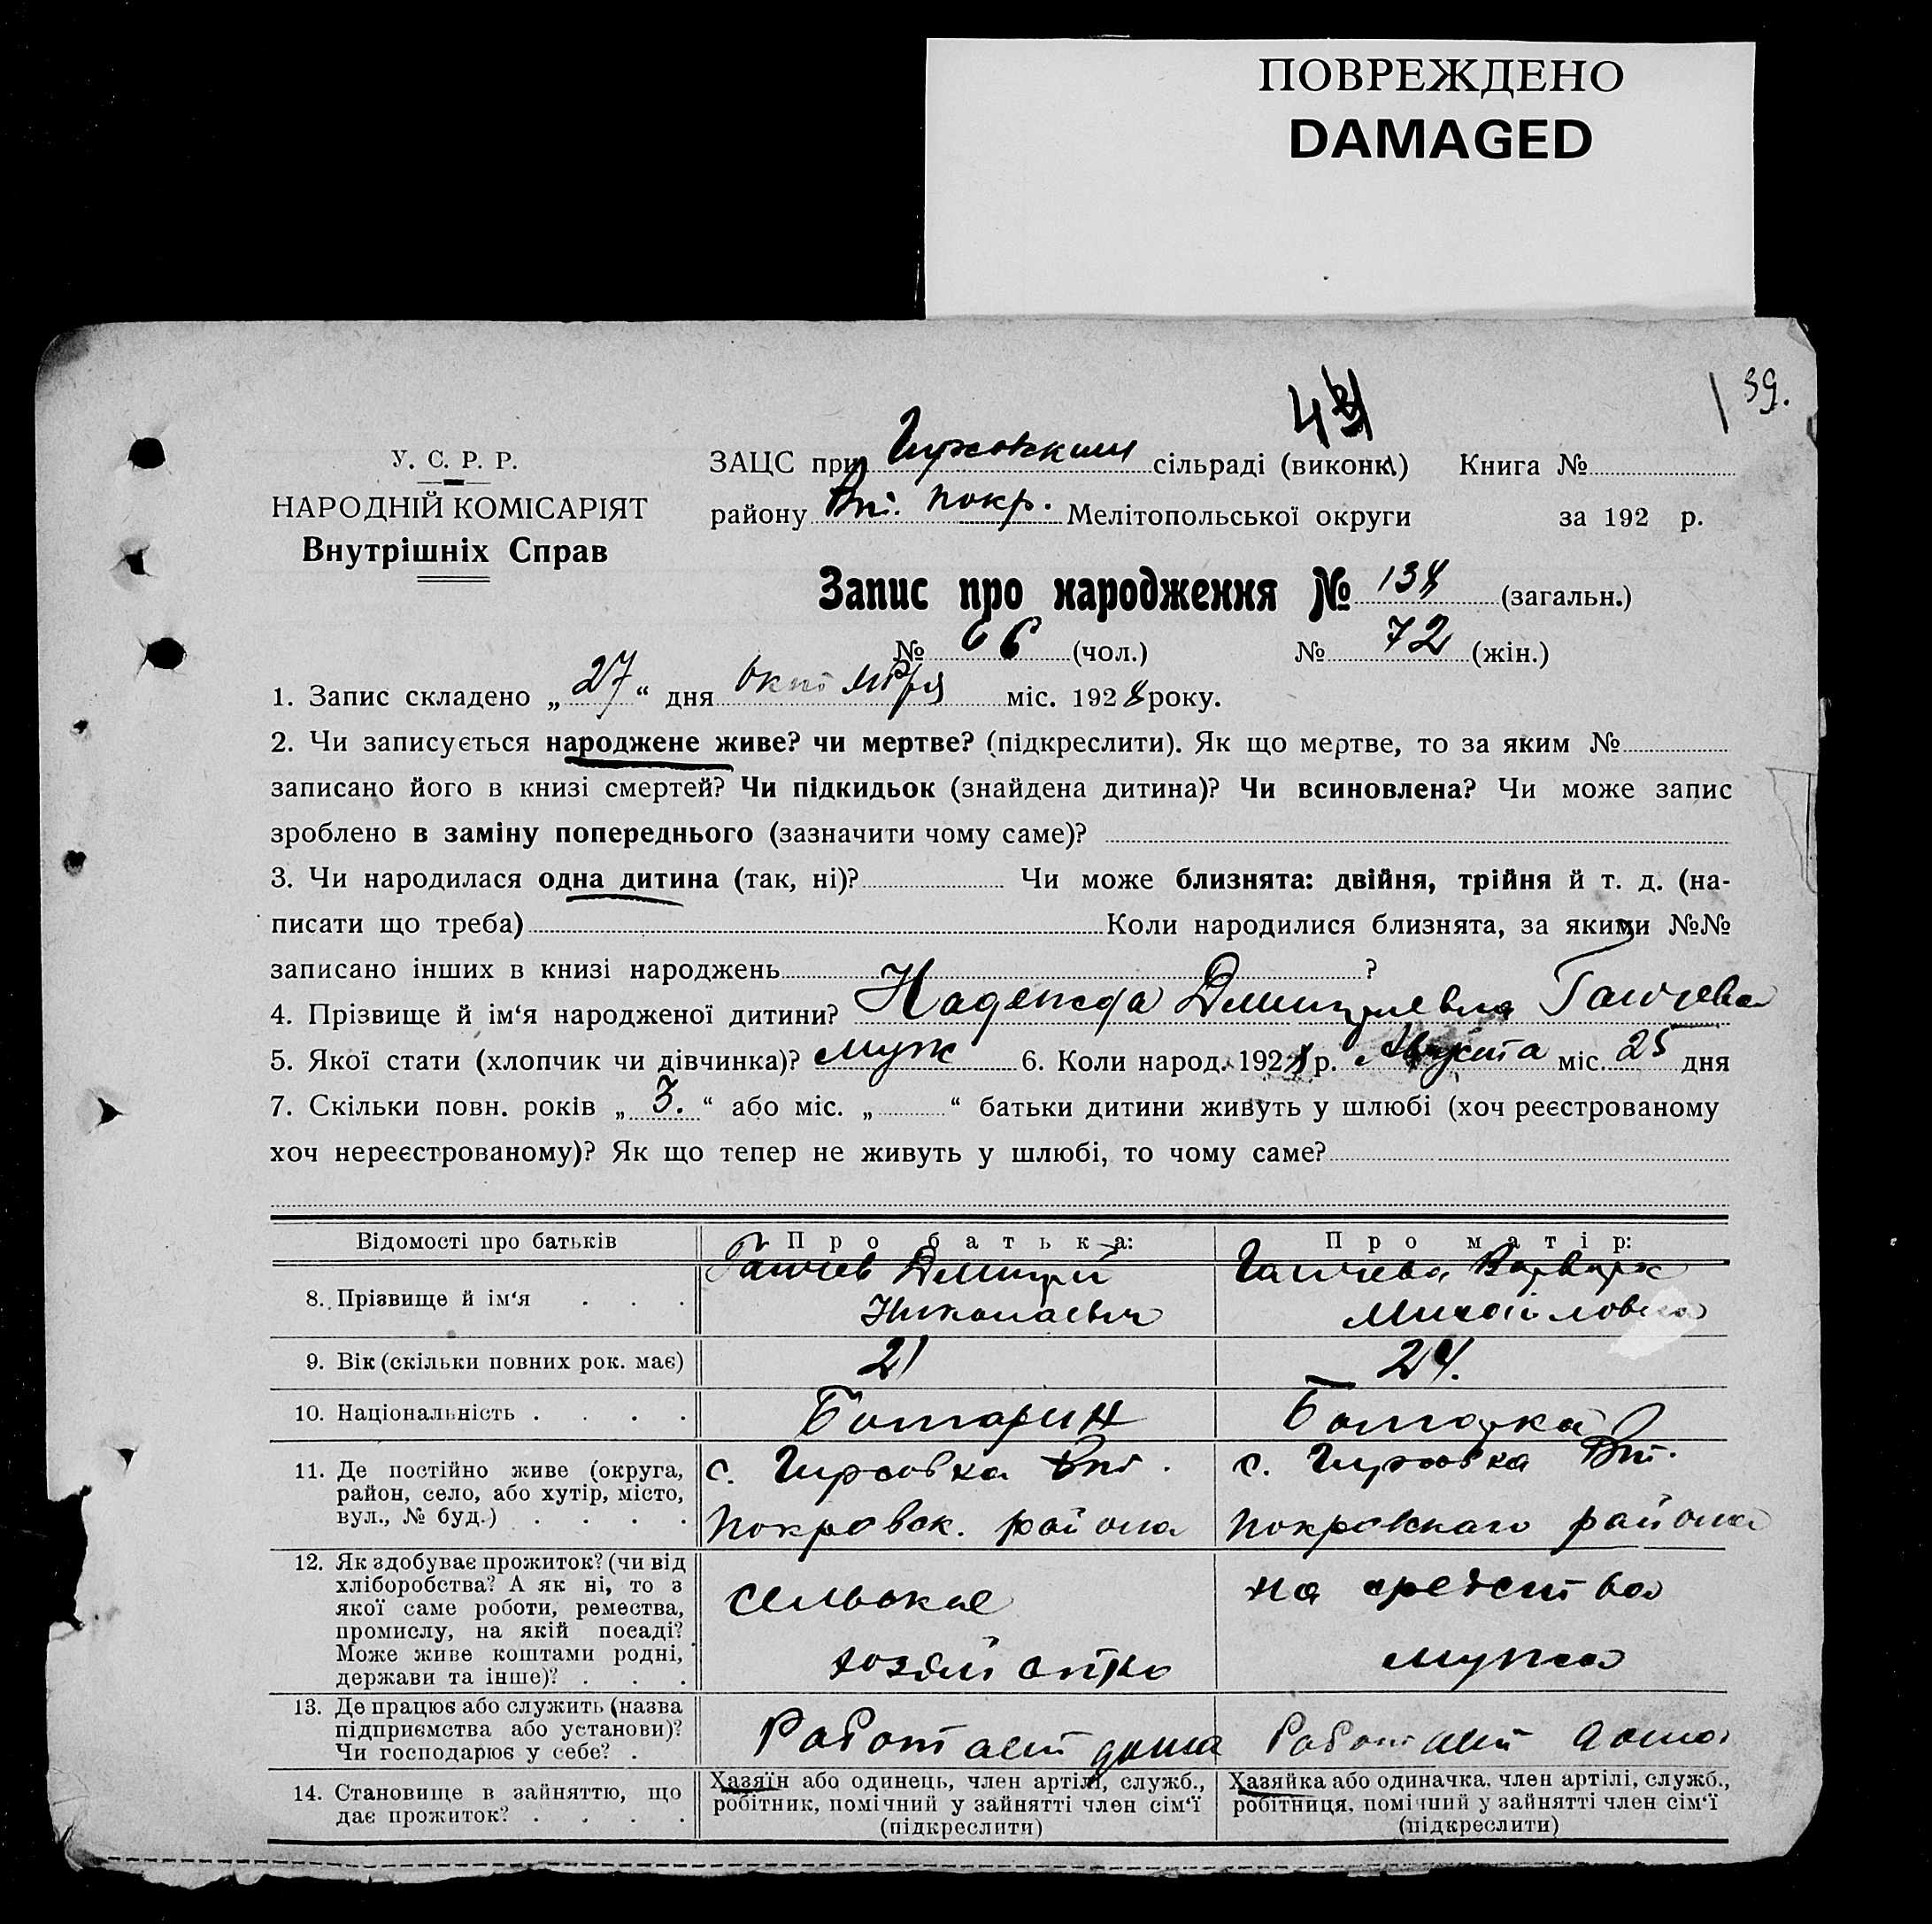 ПОВРЕЖДЕНО
DAMAGED
39.
У. С. Р. Р.
НАРОДНІЙ КОМІСАРІЯТ
Внутрішніх Справ
ЗАЦС при Гирсовским сільраді (викон) Книга №
району Пт. покр. Мелітопольської округи за 192 р.
Запис про народження № 138 (загальн.)
№ 66 (чол.) № 72 (жін.)
1. Запис складено „27“ дня Октября міс. 1928 року.
2. Чи записується народжене живе? чи мертве? (підкреслити). Як що мертве, то за яким №
записано його в книзі смертей? Чи підкидьок (знайдена дитина)? Чи всиновлена? Чи може запис
зроблено в заміну попереднього (зазначити чому саме)?
3. Чи народилася одна дитина (так, ні)? Чи може близнята: двійня, трійня й т. д. (на-
писати що треба) Коли народилися близнята, за якими №№
записано інших в книзі народжень ?
4. Прізвище й ім‘я народженої дитини? Надежда Дмитриевна Гайчева
5. Якої стати (хлопчик чи дівчинка)? муж 6. Коли народ. 1928 р. Августа міс. 25 дня
7. Скільки повн. років „3.“ або міс. „ “ батьки дитини живуть у шлюбі (хоч реєстрованому
хоч нереєстрованому)? Як що тепер не живуть у шлюбі, то чому саме?
Відомості про батьків Про батька: Про матір:
8. Прізвище й ім‘я . . . Гайчев Дмитрий Николаевич Гайчева Варвара Михайловна
9. Вік (скільки повних рок. має) 21 24.
10. Національність . . . . Болгарин Болгарка
11. Де постійно живе (округа, район, село, або хутір, місто, вул., № буд.) . . . . с. Гирсовка Пт. Покровск. района с. Гирсовка Пт. Покровскаго района
12. Як здобуває прожиток? (чи від хліборобства? А як ні, то з якої саме роботи, ремества, промислу, на якій посаді? Може живе коштами родні, держави та інше)? . . . сельское хозяйство на средства мужа
13. Де працює або служить (назва підприємства або установи)? Чи господарює у себе? . Работает дома Работает дома
14. Становище в зайняттю, що дає прожиток? . . . . Хазяїн або одинець, член артілі, служб., робітник, помічний у зайнятті член сім‘ї (підкреслити) Хазяйка або одиначка, член артілі, служб., робітниця, помічний у зайнятті член сім‘ї (підкреслити)